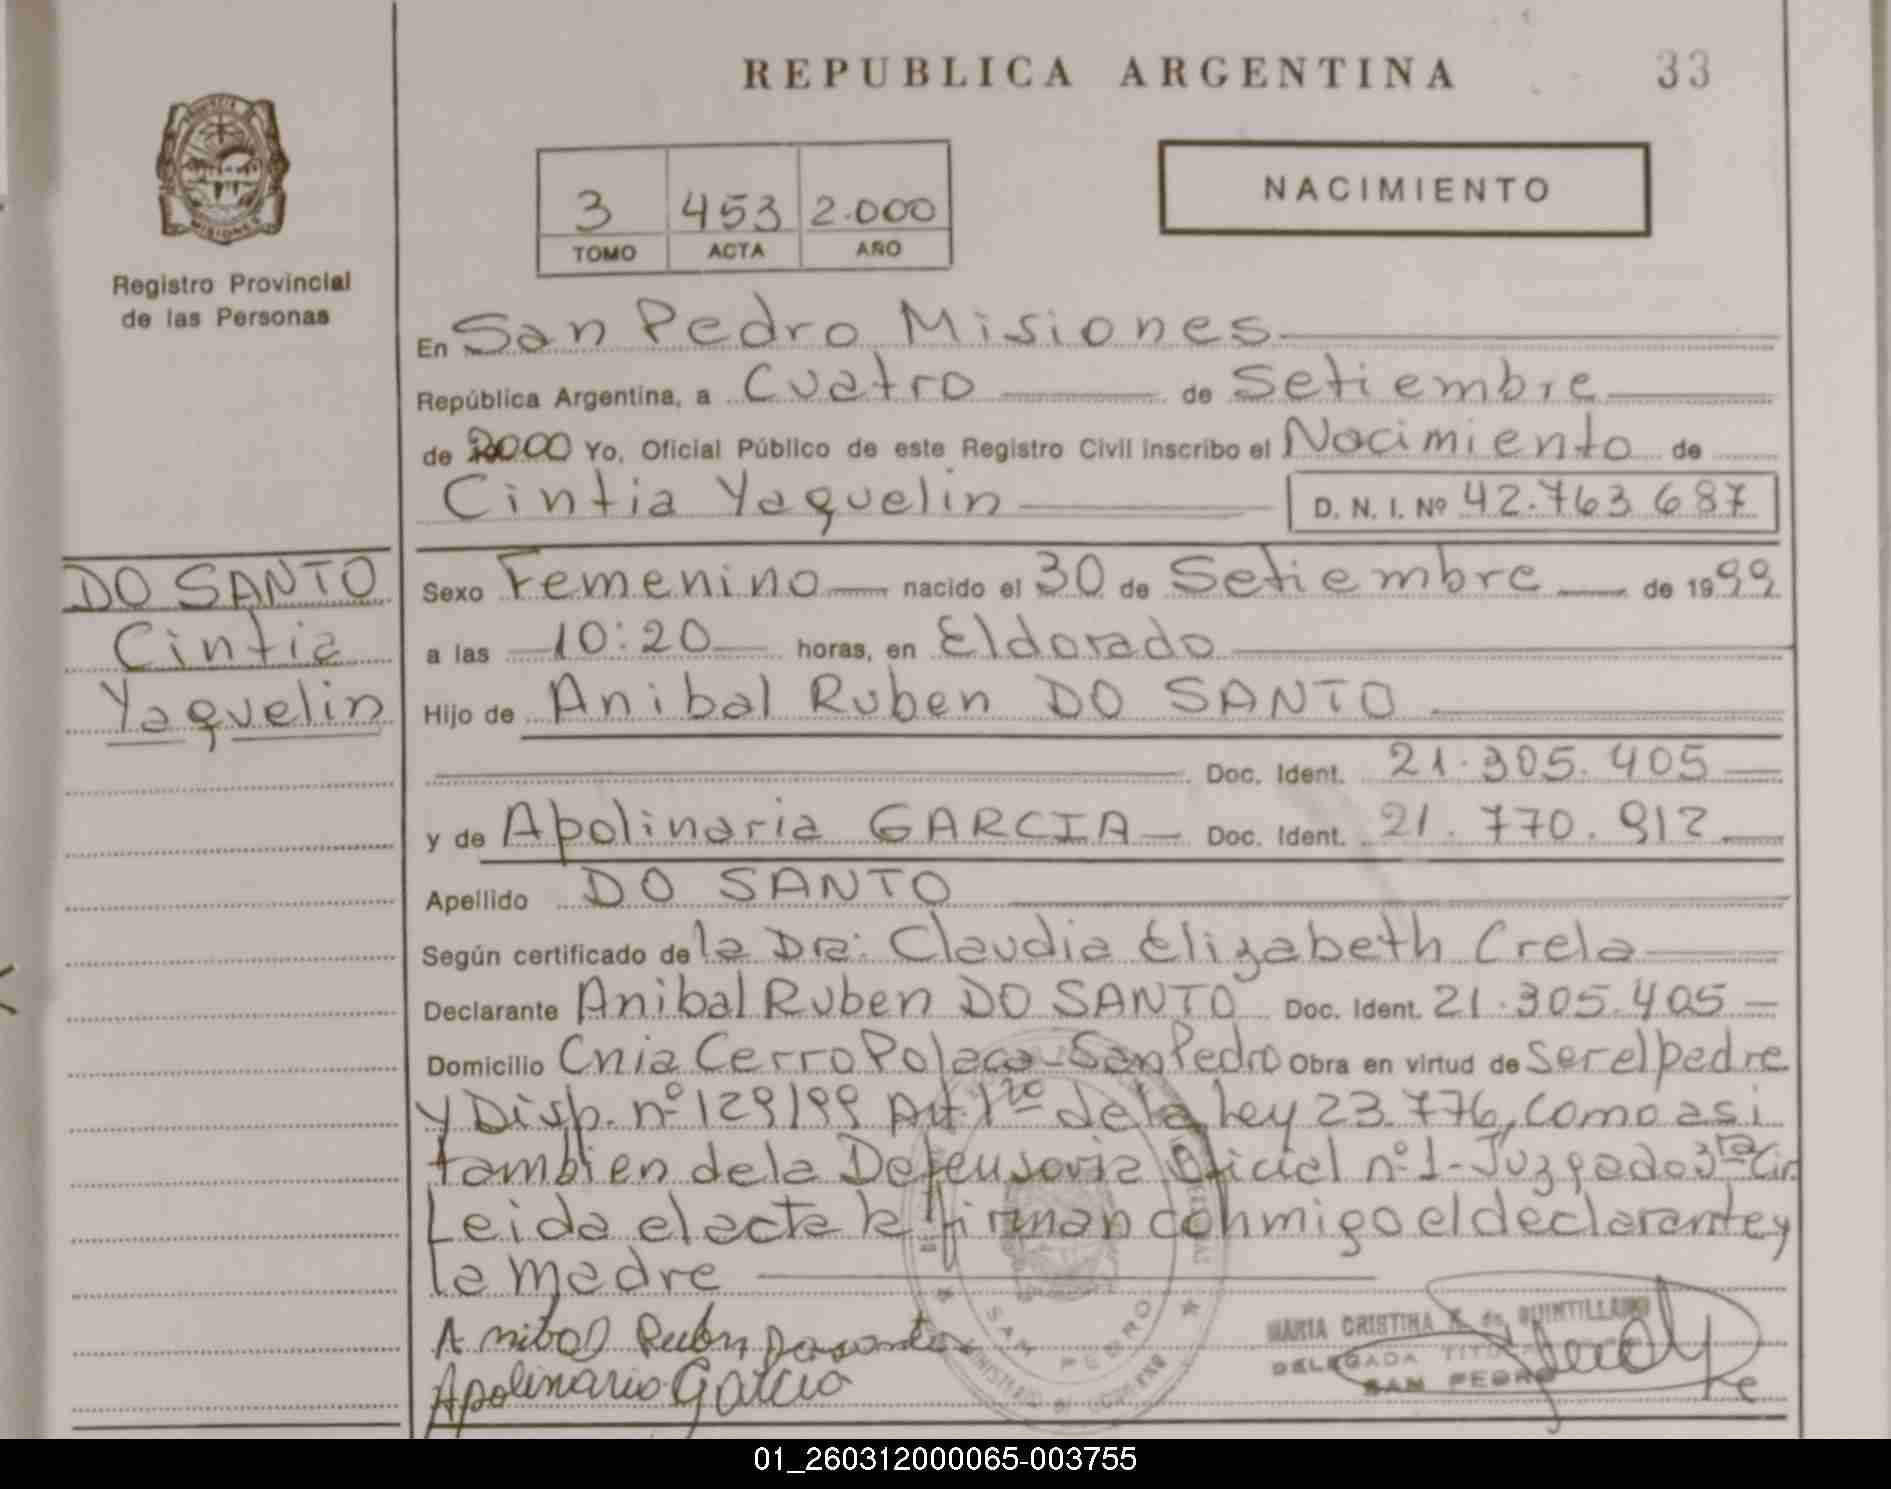 REPUBLICA ARGENTINA
33
MISIONES
Registro Provincial
de las Personas
3 453 2.000
TOMO ACTA AÑO
NACIMIENTO
En San Pedro Misiones
República Argentina, a Cuatro de Setiembre
de 2000 Yo, Oficial Público de este Registro Civil inscribo el Nacimiento de
Cintia Yaquelin D. N. I. Nº 42.763 687
DO SANTO
Cintia
Yaquelin
Sexo Femenino nacido el 30 de Setiembre de 1999
a las 10:20 horas, en Eldorado
Hijo de Anibal Ruben DO SANTO
Doc. Ident. 21.305.405
y de Apolinaria GARCIA Doc. Ident. 21.770.912
Apellido DO SANTO
Según certificado de la Dra: Claudia Elizabeth Crela
Declarante Anibal Ruben DO SANTO Doc. Ident. 21.305.405
Domicilio Cnia Cerro Polaca - San Pedro Obra en virtud de Ser el padre
y Disp. nº 129/99 Art. 1ro de la Ley 23.776, como asi
tambien de la Defensoria Oficial nº 1 - Juzgado 3ra Cir
Leida el acta la firman conmigo el declarante y
la madre
Anibal Ruben
Apolinario Garcia
SAN PEDRO
MARIA CRISTINA de QUINTILLANO
DELEGADA TITULAR
SAN PEDRO
01_260312000065-003755